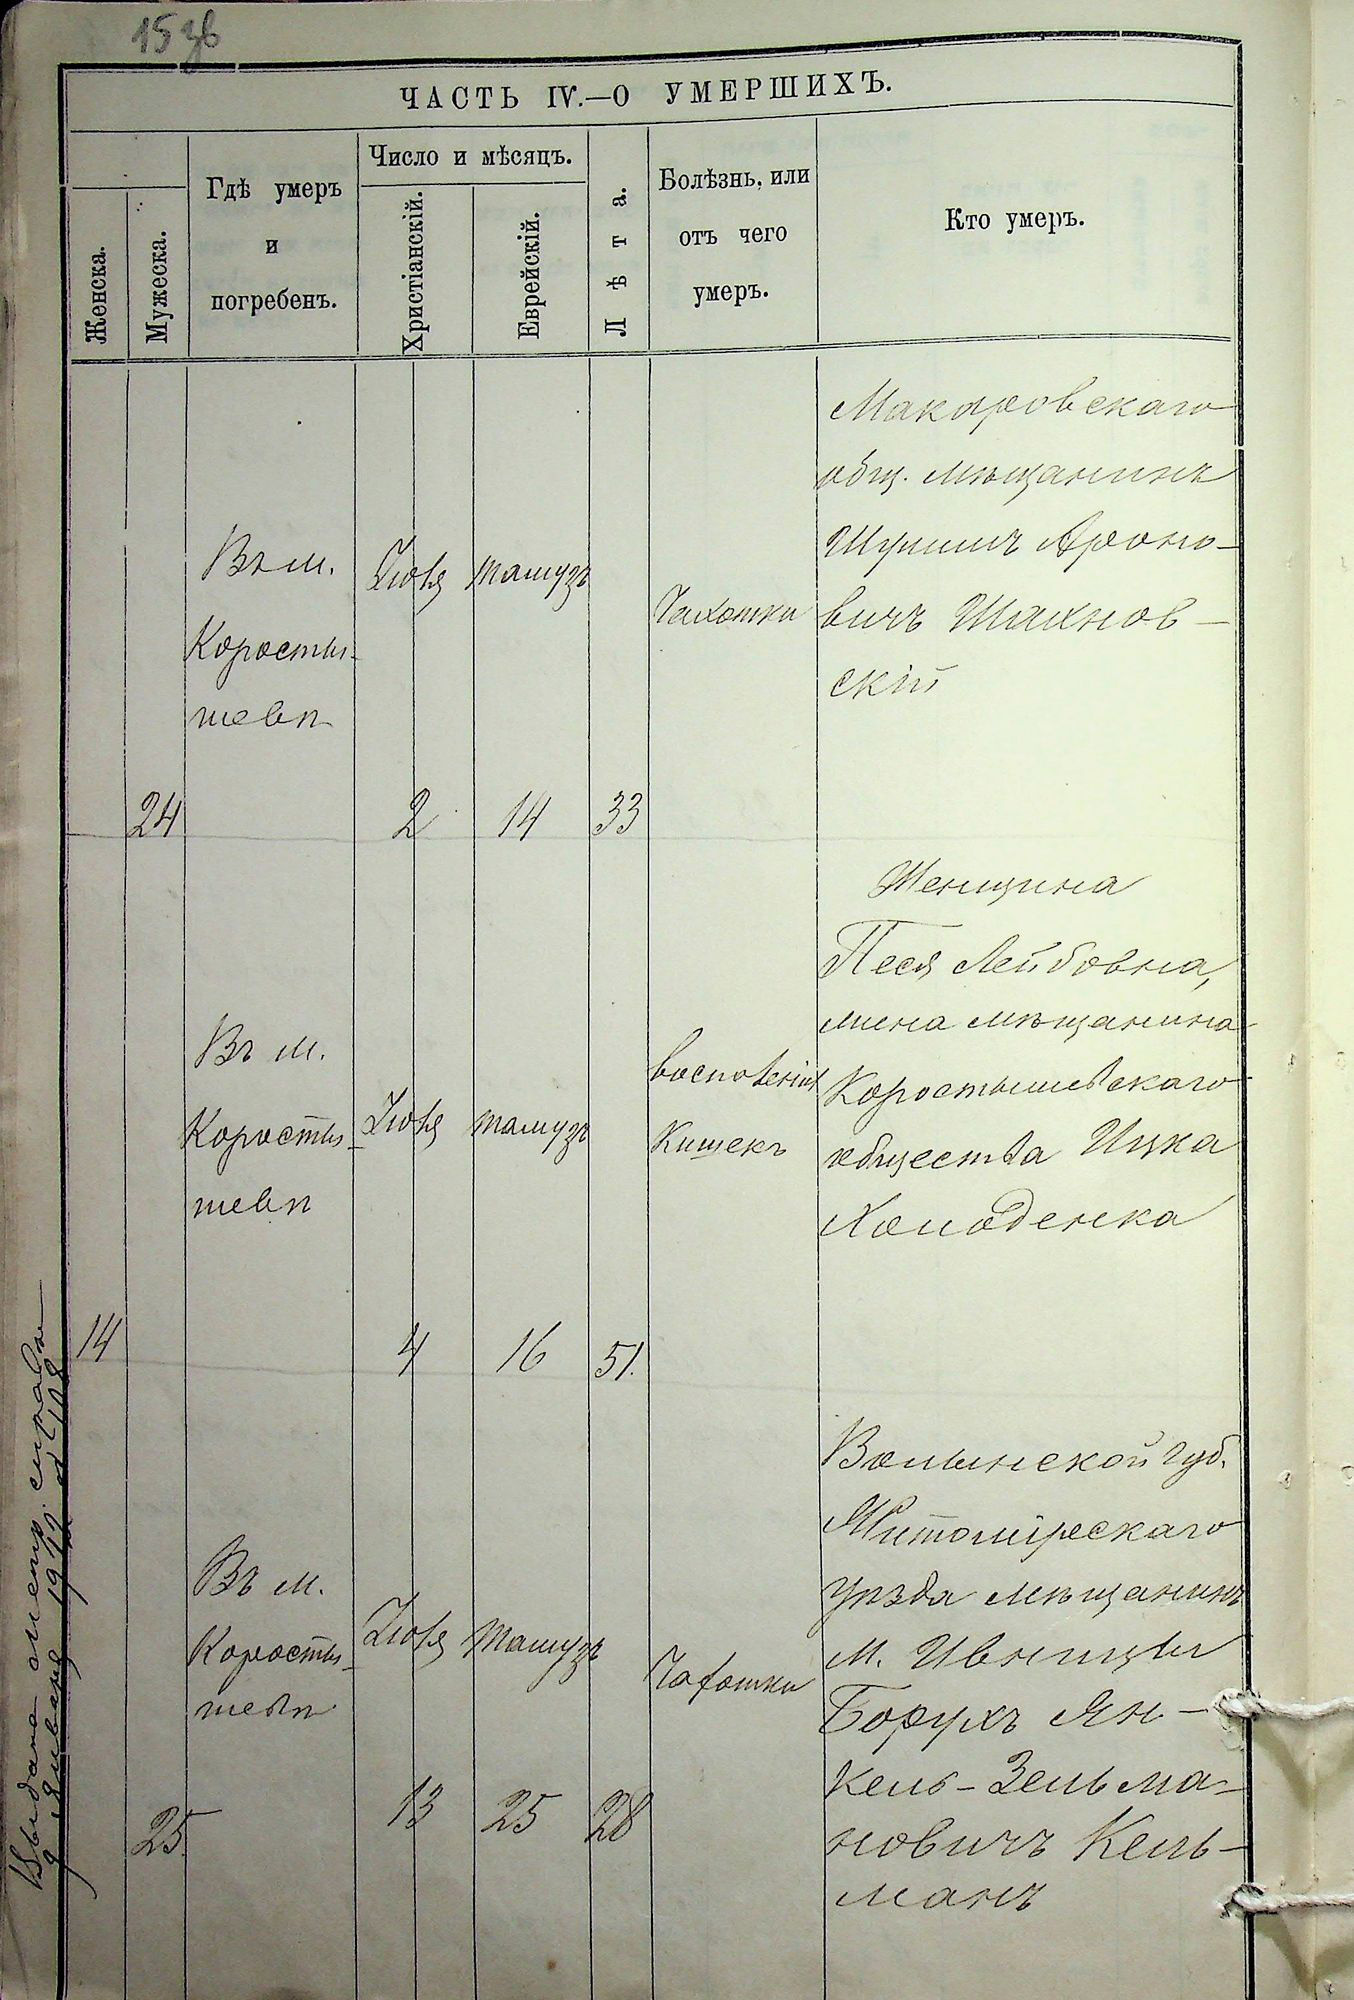 15 зв
ЧАСТЬ IV.—О УМЕРШИХЪ.
Женска.
Мужеска.
Гдѣ умеръ
и
погребенъ.
Число и мѣсяцъ.
Христіанскій.
Еврейскій.
Лѣта.
Болѣзнь, или
отъ чего
умеръ.
Кто умеръ.
24
Въ м.
Коросты-
шевѣ
Іюля
2
Тамузъ
14
33
Чахотки
Макаровскаго
общ. мѣщанинъ
Шулимъ Ароно-
вичъ Шахнов-
скій
14
Въ м.
Коросты-
шевѣ
Іюля
4
Тамузъ
16
51.
Воспаленія
Кишекъ
Женщина
Песя Лейбовна,
жена мѣщанина
Коростышевскаго
общества Ицка
Холоденка
25
Въ м.
Коросты-
шевѣ
Іюля
13
Тамузъ
25
28
Чахотки
Волынской губ.
Житомірскаго
уѣзда мѣщанинъ
м. Ивницы
Борухъ Ян-
кель-Зельма-
новичъ Кель-
манъ
Выдана метр. справк
9 Января 1912 г. № 108